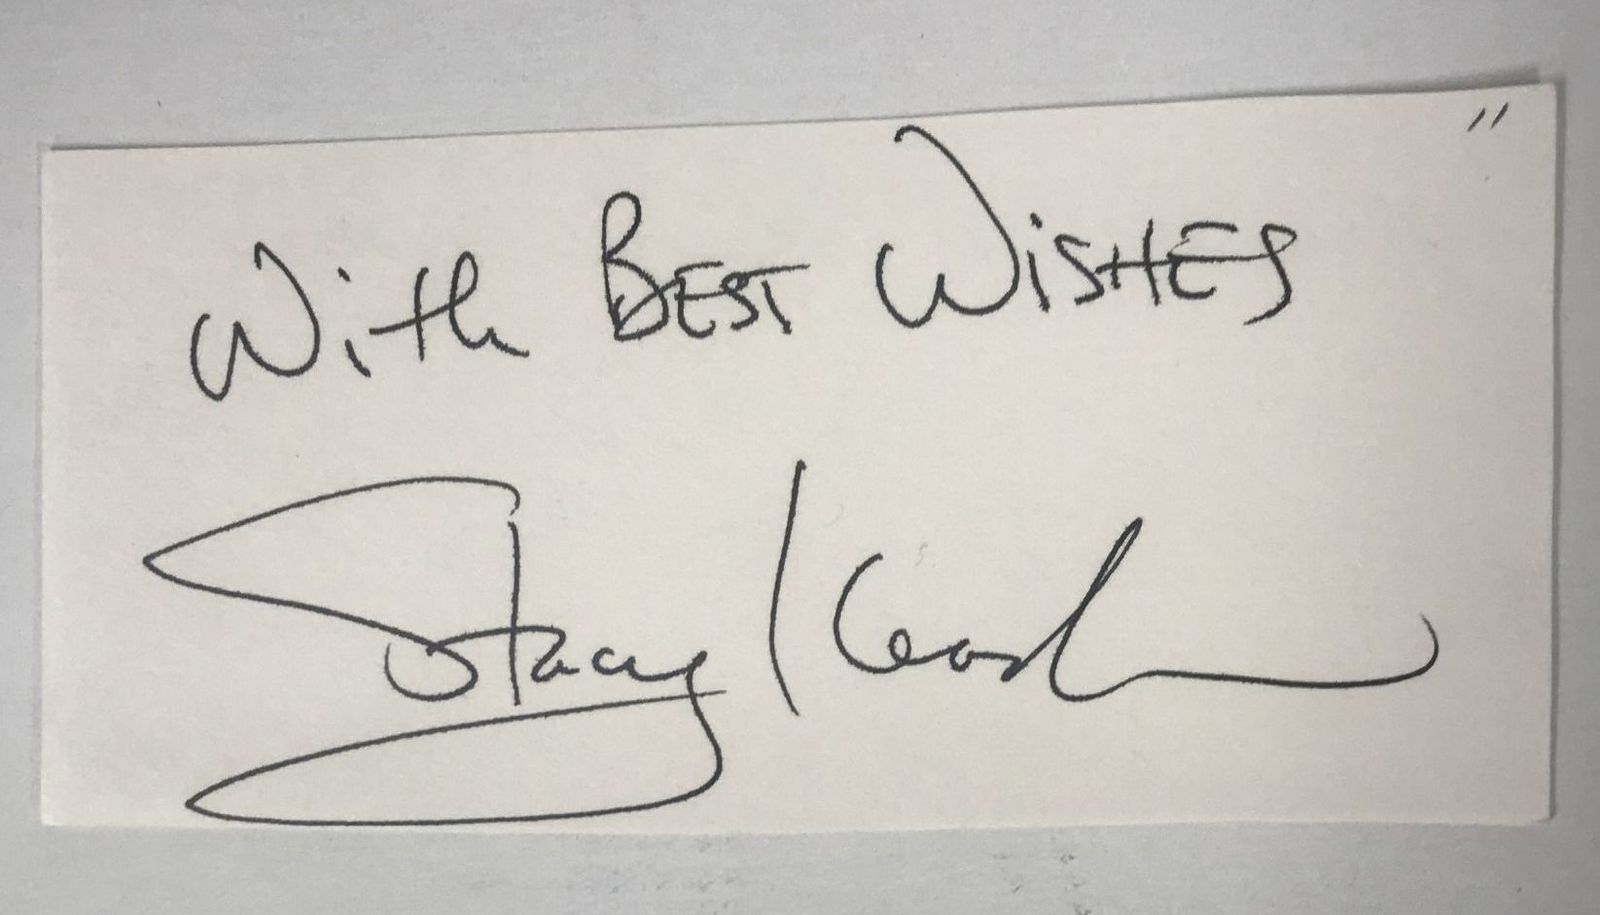 With BEST WISHES "
Stacy Keach